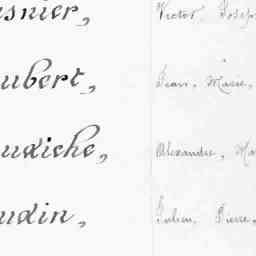 snier, Victor, Josep
ubert, Jean, Marie,
udiche, Alexandre, Ma
udin, Julien, Pierre,